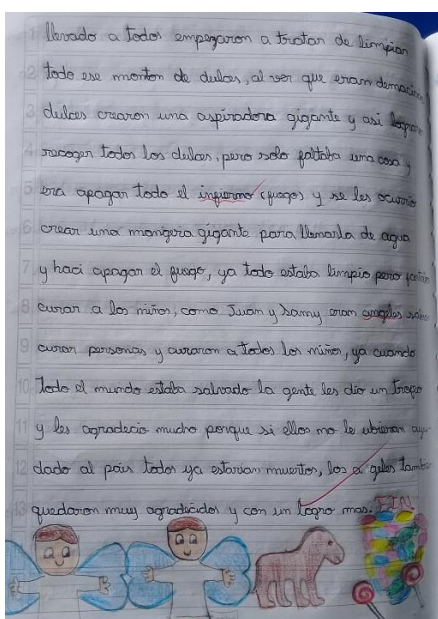 llevado a todos empezaron a tratar de limpiar
2 todo ese monton de dulces, al ver que eran demaciados
3 dulces crearon una aspiradora gigante y asi lograron
4 recoger todos los dulces, pero solo faltaba una cosa y
5 era apagar todo el infierno (fuego) y se les ocurrio
6 crear una mangera gigante para llenarla de agua
7 y haci apagar el fuego, ya todo estaba limpio pero
8 curar a los niños, como Juan y Samy eran angeles
9 curar personas y curaron a todos los niños, ya cuando
10 todo el mundo estaba salvado la gente les dio un trofeo
11 y les agradecio mucho porque si ellos no le ubieran ayu
12 dado al pais todos ya estarian muertos, los a geles tambien
13 quedaron muy agradecidos y con un logro mas. FIN